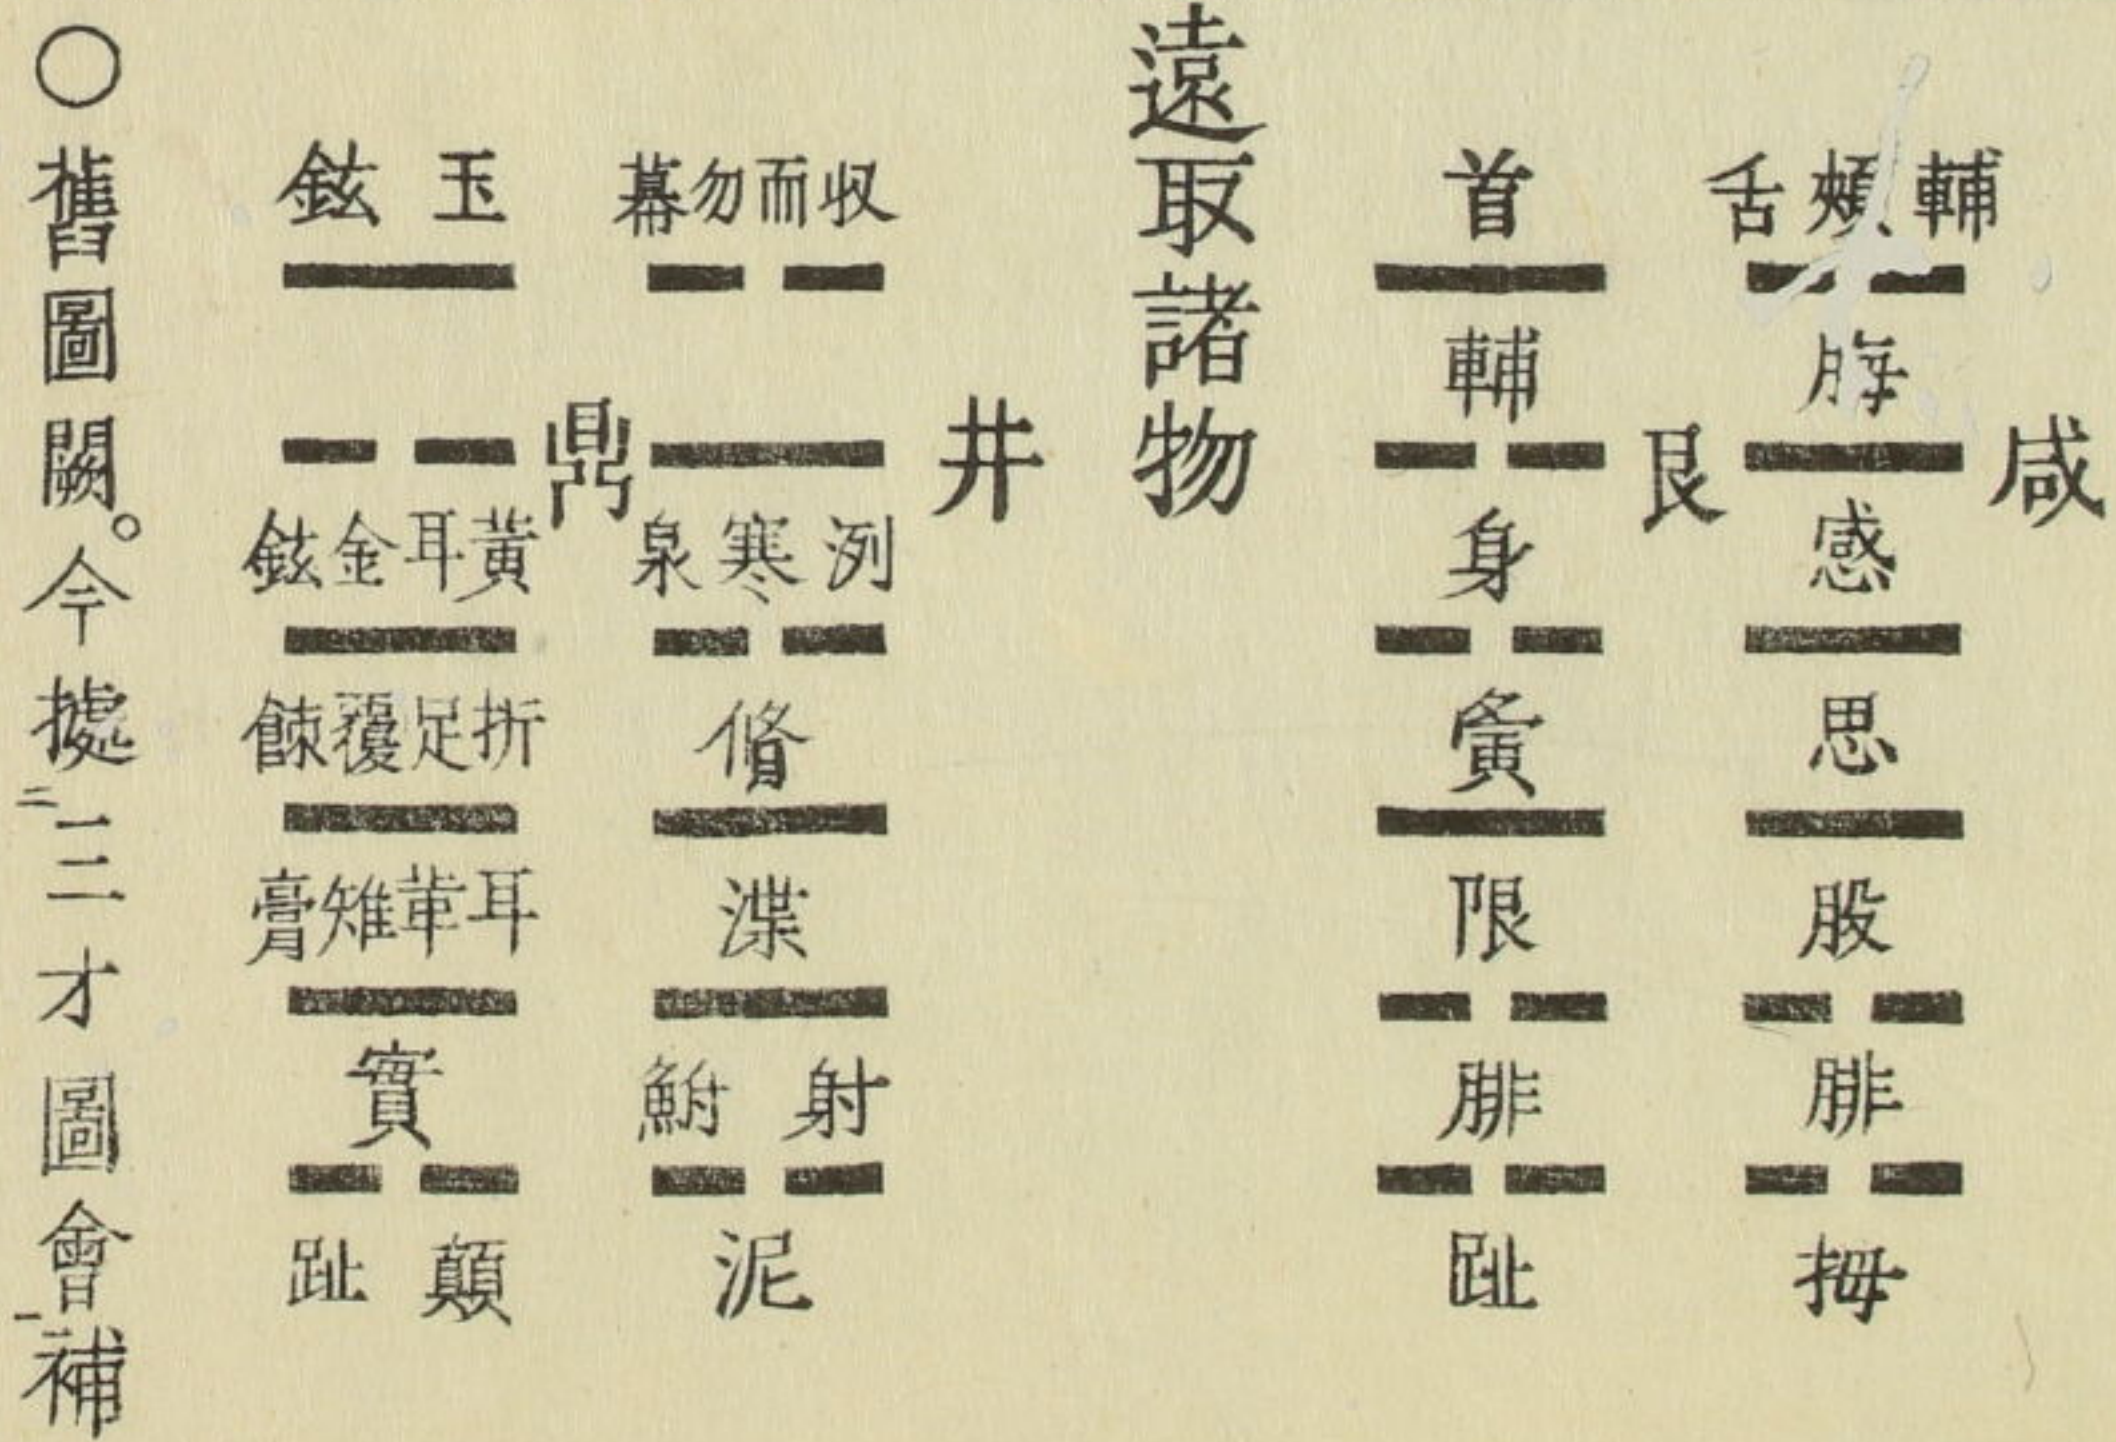 咸
輔頰舌
脢
感
思
股
腓
拇
艮
首
輔
身
夤
限
腓
趾
遠取諸物
井
收而勿幕
洌寒泉
脩
渫
射鮒
泥
鼎
玉鉉
黃耳金鉉
折足覆餗
耳革雉膏
實
顛趾
○舊圖闕。今據二三才圖會一補